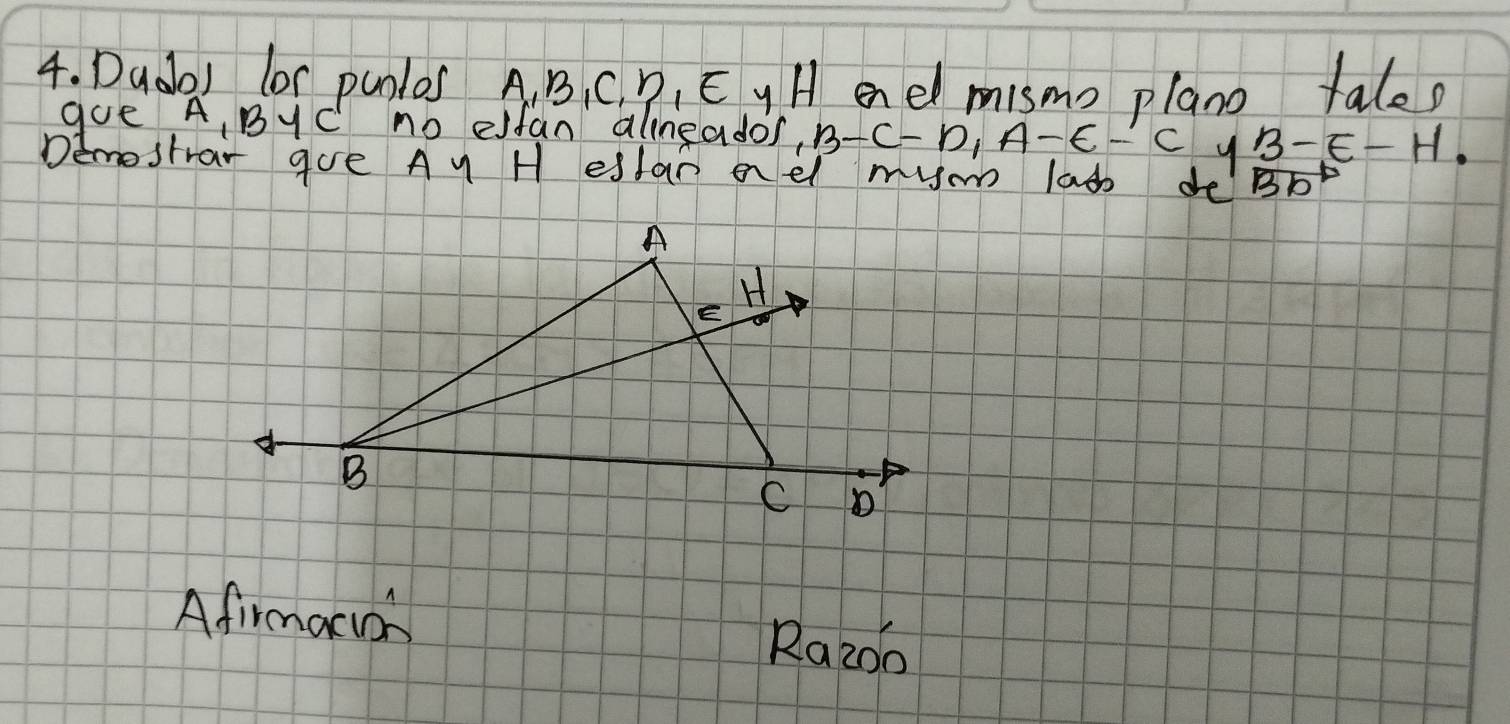 4. Dados los puntos A, B, C, D, E y H en el mismo plano tales
que A, B y C no estan alineados, B-C-D, A-E-C y B-E-H.
Demostrar que A y H estan en el mismo lado de BD
A
H
E
B
C
D
Afirmación
Razón